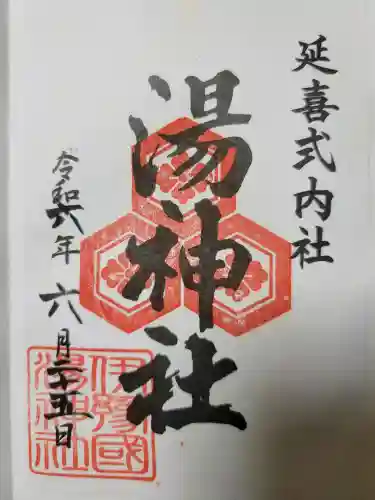 延喜式内社
湯神社
令和六年六月二十五日
伊豫國
湯神社